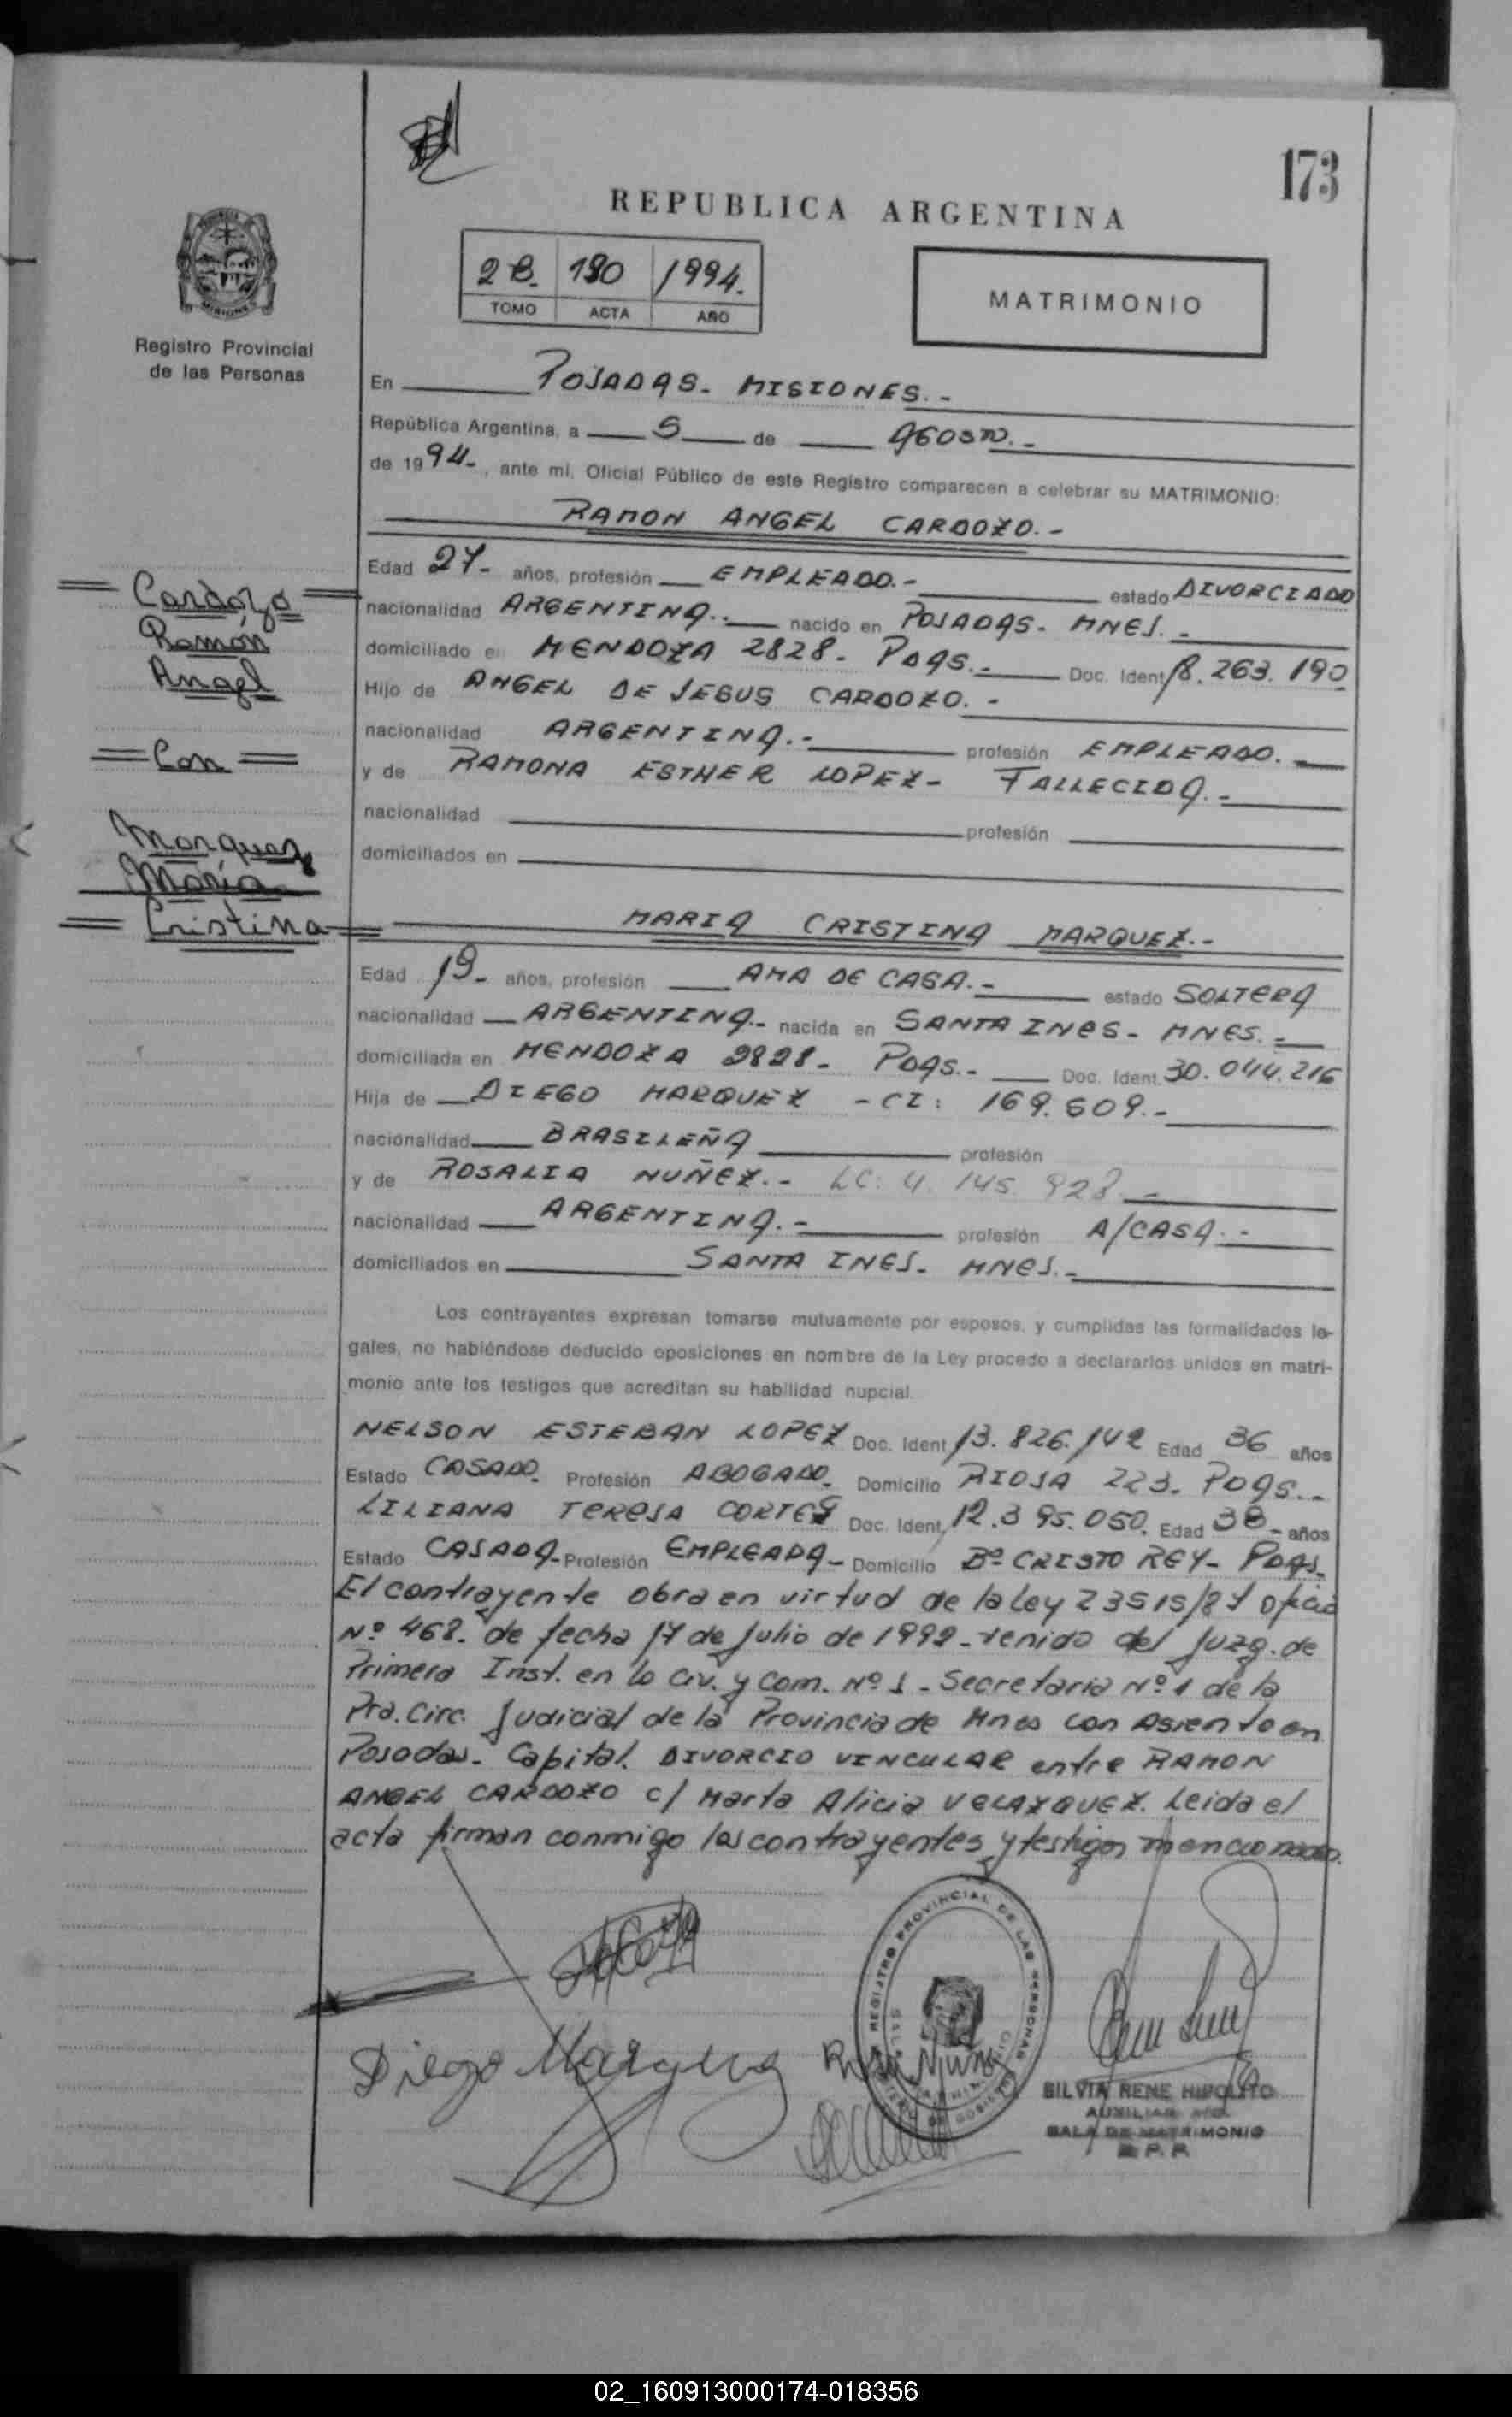 173
REPUBLICA ARGENTINA
2B. 190 1994.
TOMO ACTA AÑO
MATRIMONIO
Registro Provincial
de las Personas
En POSADAS - MISIONES.-
República Argentina, a 5 de AGOSTO.-
de 1994-, ante mí, Oficial Público de este Registro comparecen a celebrar su MATRIMONIO:
RAMON ANGEL CARDOZO.-
Edad 27- años, profesión EMPLEADO.- estado DIVORCIADO
nacionalidad ARGENTINA.- nacido en POSADAS - MNES.-
domiciliado en MENDOZA 2828 - Pdas.- Doc. Ident. 18.263.190
Hijo de ANGEL DE JESUS CARDOZO.-
nacionalidad ARGENTINA.- profesión EMPLEADO.-
y de RAMONA ESTHER LOPEZ - FALLECIDA.-
nacionalidad profesión
domiciliados en
Cardozo
Ramón
Angel
Con
Marquez
María
Cristina
MARIA CRISTINA MARQUEZ.-
Edad 19- años, profesión AMA DE CASA.- estado SOLTERA
nacionalidad ARGENTINA.- nacida en SANTA INES - MNES.-
domiciliada en MENDOZA 2828 - Pdas.- Doc. Ident. 30.044.216
Hija de DIEGO MARQUEZ - CI: 169.609.-
nacionalidad BRASILEÑA profesión
y de ROSALIA NUÑEZ.- LC: 4.145.928.-
nacionalidad ARGENTINA.- profesión A/CASA.-
domiciliados en SANTA INES - MNES.-
Los contrayentes expresan tomarse mutuamente por esposos, y cumplidas las formalidades le-
gales, no habiéndose deducido oposiciones en nombre de la Ley procedo a declararlos unidos en matri-
monio ante los testigos que acreditan su habilidad nupcial.
NELSON ESTEBAN LOPEZ Doc. Ident. 13.826.142 Edad 36 años
Estado CASADO- Profesión ABOGADO- Domicilio RIOJA 223 - Pdas.-
LILIANA TERESA CORTES Doc. Ident. 12.395.050. Edad 38- años
Estado CASADA- Profesión EMPLEADA- Domicilio Bº CRISTO REY - Pdas.
El contrayente obra en virtud de la Ley 23515/87 oficio
Nº 468. de fecha 17 de Julio de 1992 - venido del Juzg. de
Primera Inst. en lo Civ. y Com. Nº 1 - Secretaria Nº 1 de la
Pra. Circ. Judicial de la Provincia de Mnes con Asiento en
Posadas - Capital. DIVORCIO VINCULAR entre RAMON
ANGEL CARDOZO c/ Marta Alicia VELAZQUEZ. Leida el
acta firman conmigo los contrayentes y testigos mencionados.
Diego Marquez
REGISTRO PROVINCIAL DE LAS PERSONAS
SILVIA RENE HIPOLITO
AUXILIAR
SALA DE MATRIMONIO
R.P.P.
02_160913000174-018356